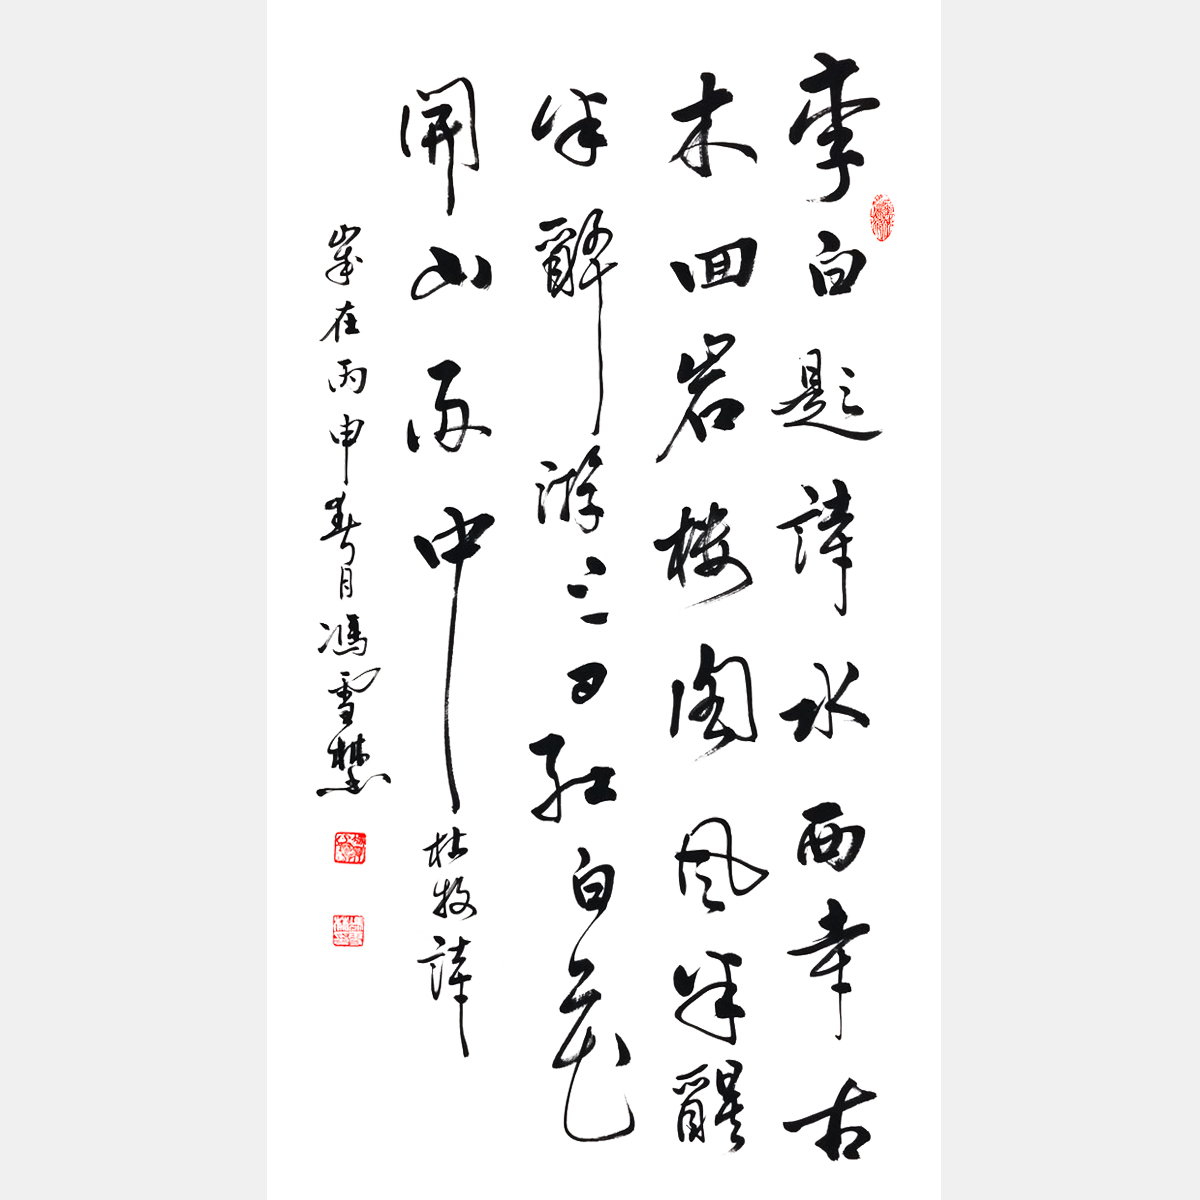 李白題詩水西寺古
木回岩楼閣風半醒
半醉游三日紅白花
開山雨中杜牧詩
歲在丙申春月馮雪林